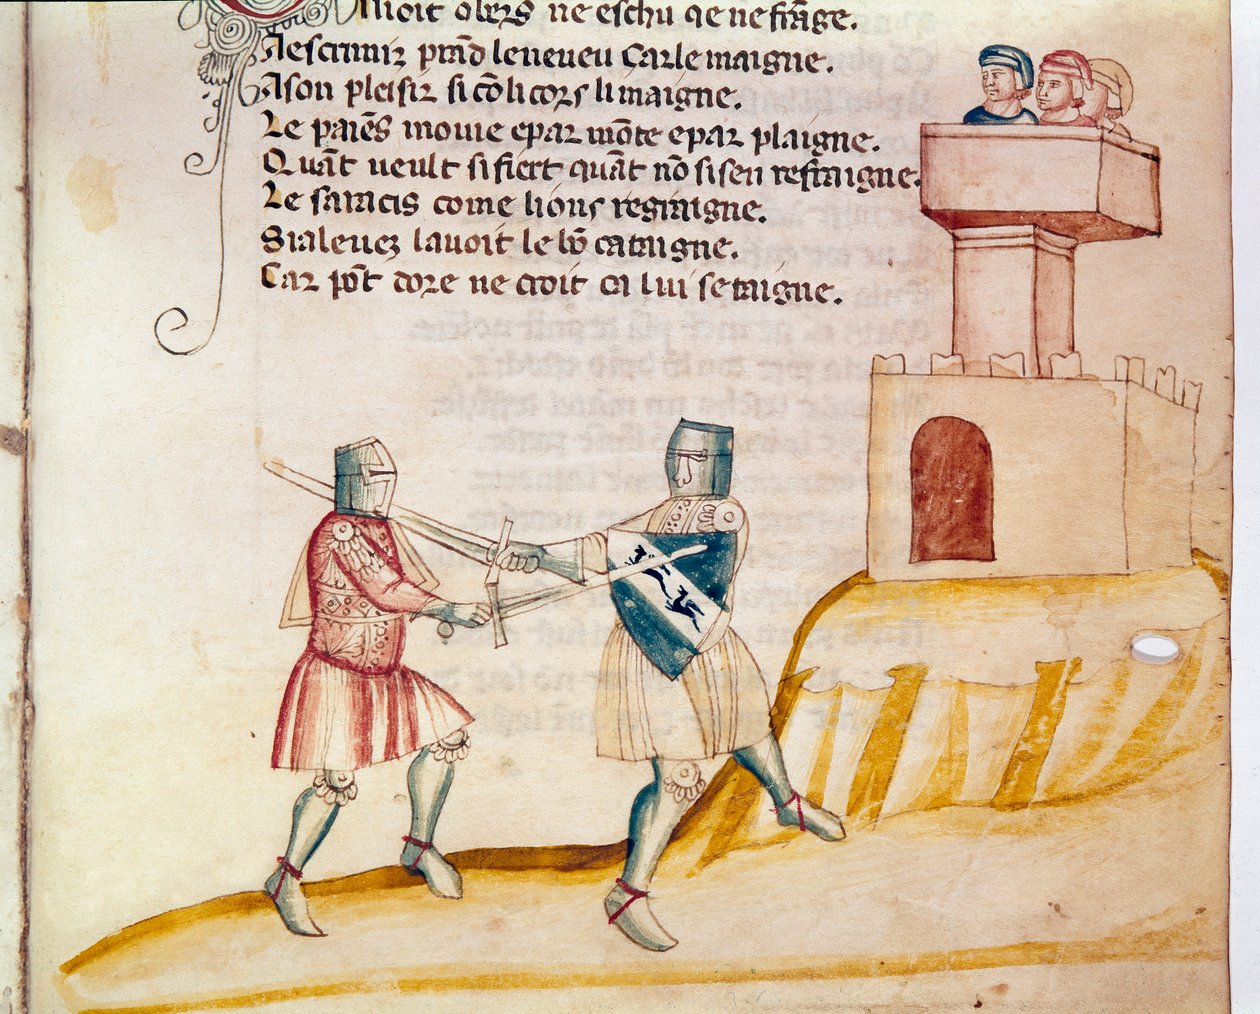 Avoit olers ne eschu qe ne frãge.
A escrimir prãd le neveu Carle maigne.
A son pleisir si cõ li cors li maigne.
Le paiẽs moine e par mõte e par plaigne.
Quãt veult si fiert quãt nõ si sen refraigne.
Le saracis come lions regraigne.
Si alevez lavoit le bõ cataigne.
Car põt dore ne croit ca lui se taigne.